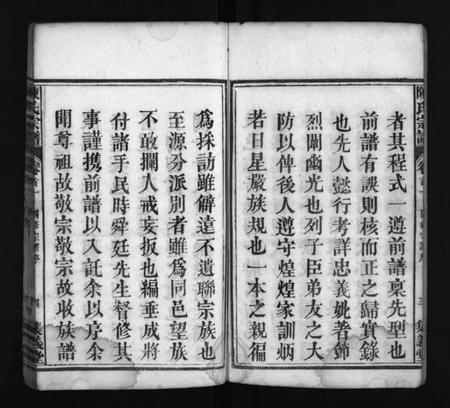 者其程式一遵前譜稟先型也
前譜有誤則核而正之歸實錄
也先人懿行考詳忠義姚著節
烈闡幽光也列子臣弟友之大
防以俾後人遵守煌煌家訓炳
若日星嚴族規也一本之親徧
為採訪雖僻遠不遺聯宗族也
至源分派別者雖為同邑望族
不敢攔入戒妄扳也編垂成將
付諸手民時舜廷先生督修其
事謹携前譜以入託余以序余
聞尊祖故敬宗敬宗故收族譜
陳氏宗譜
卷首
四
集義堂